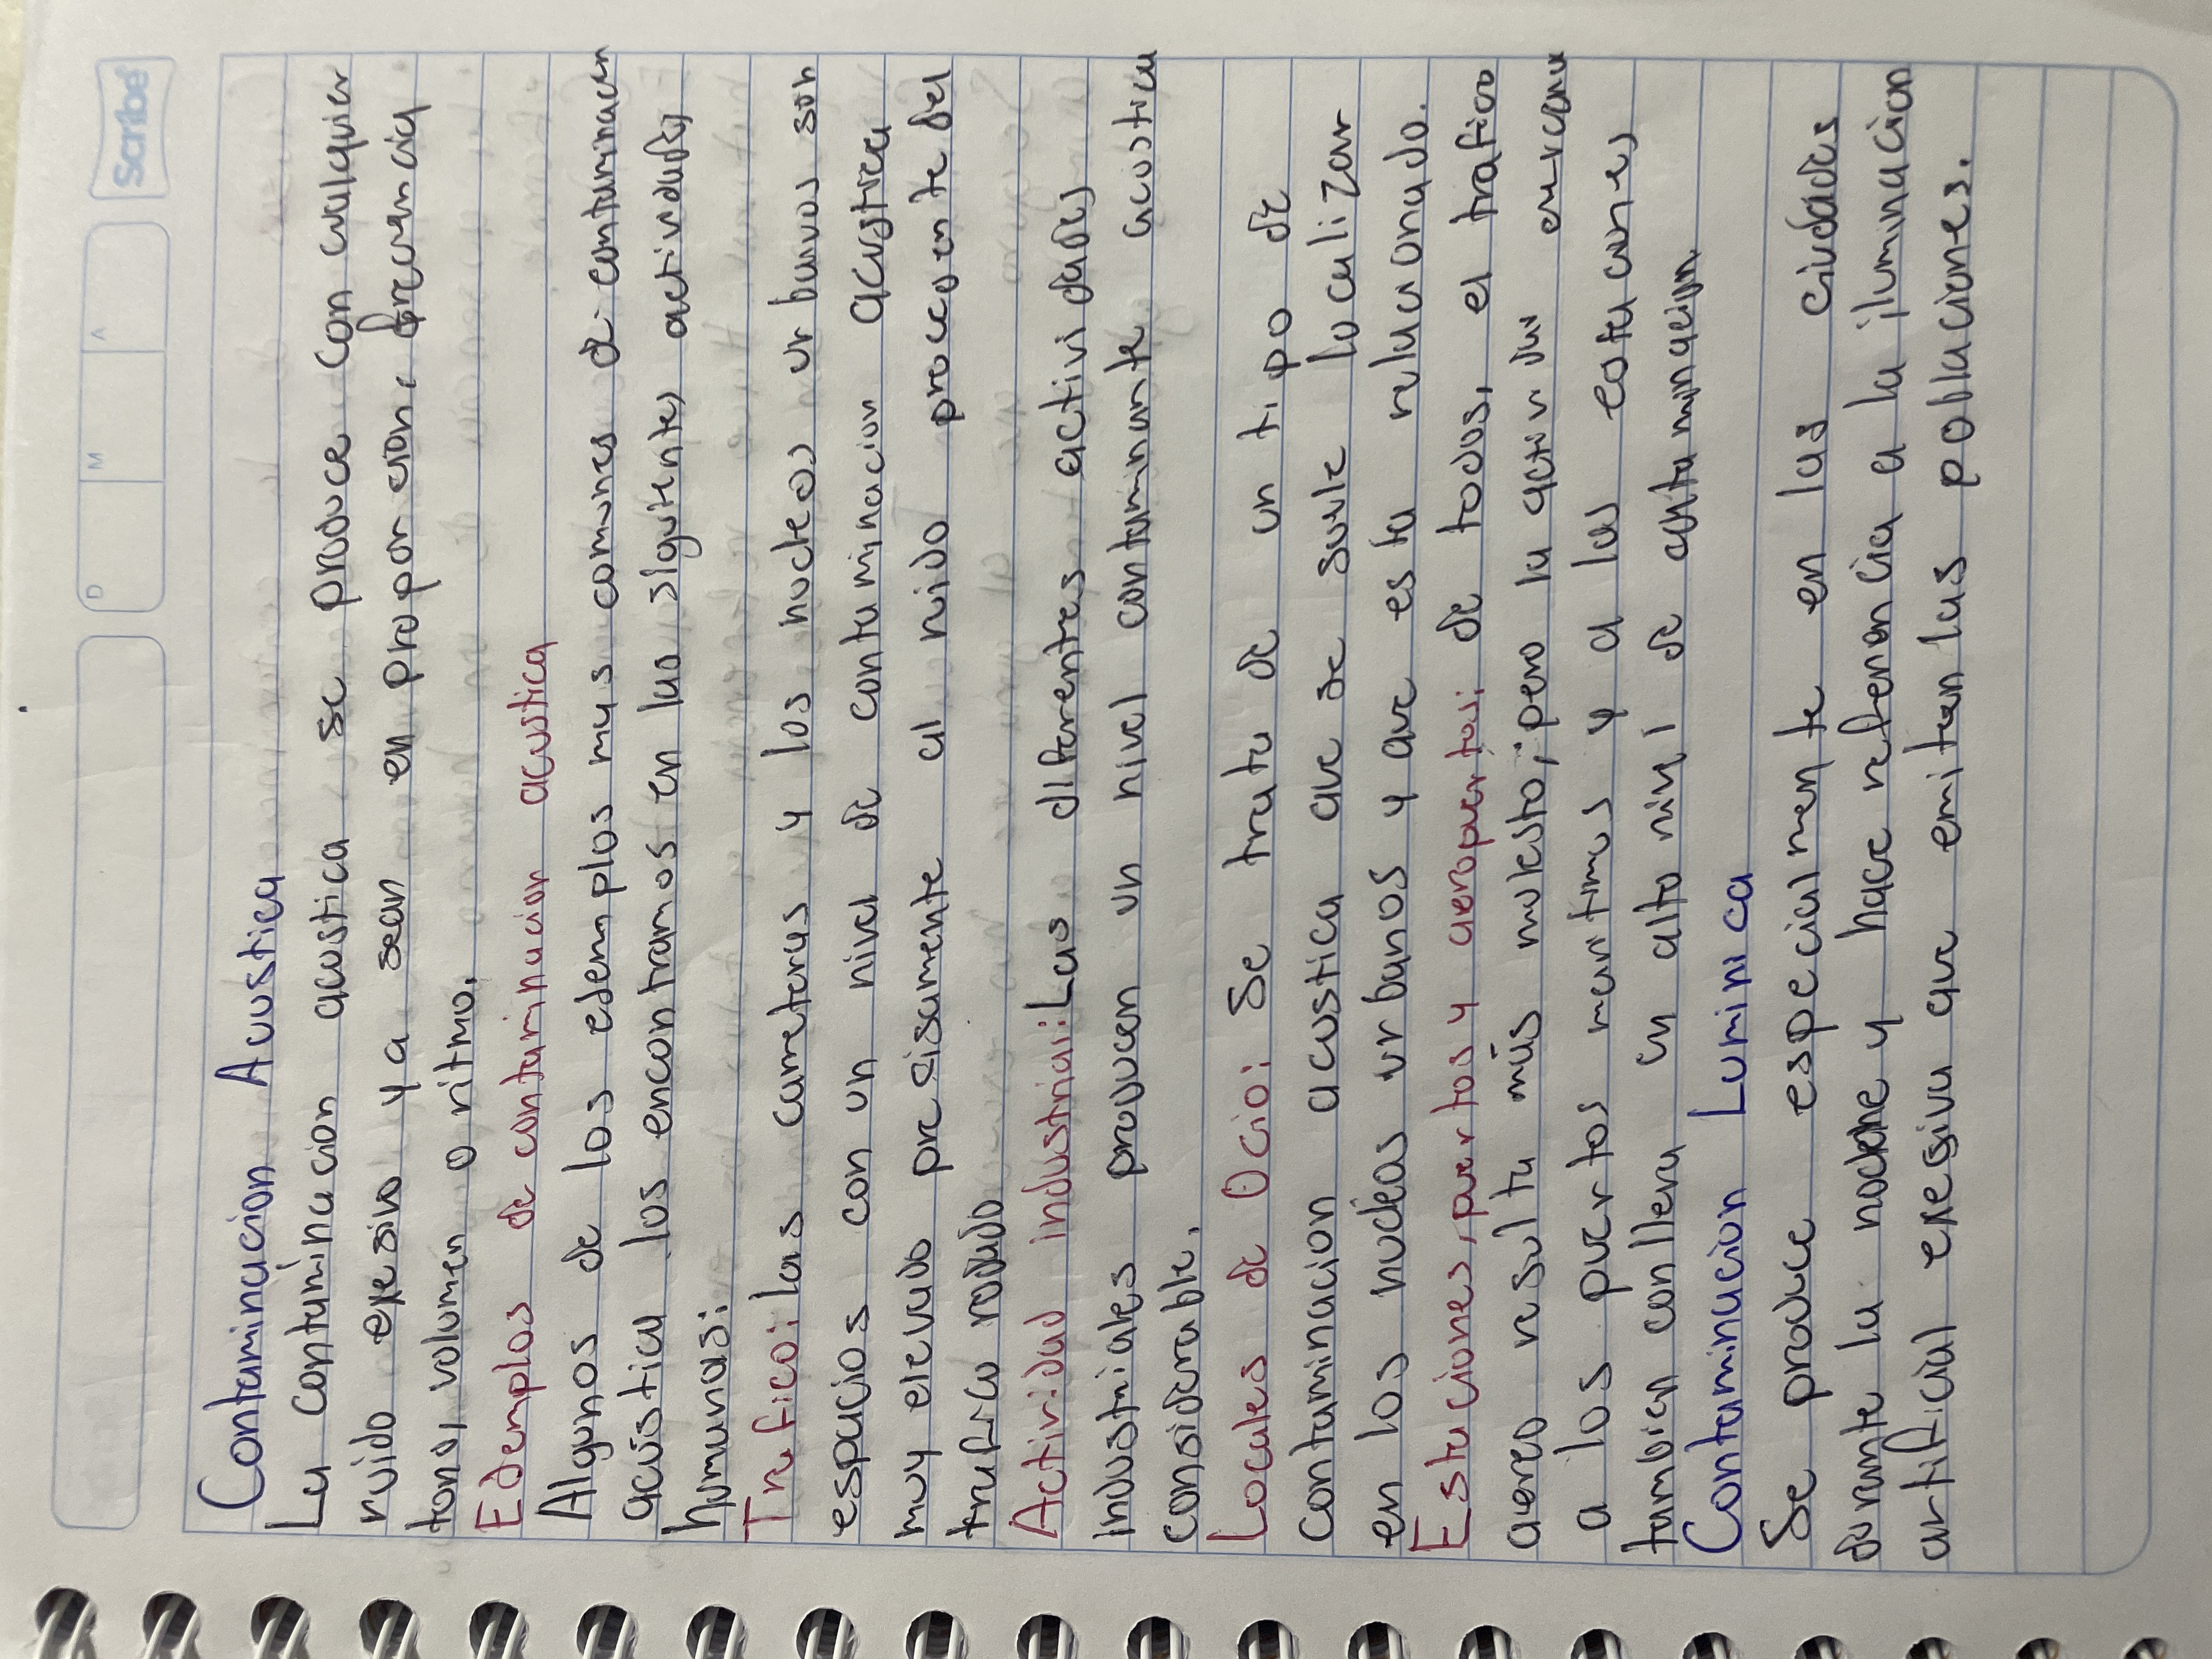 Scribe
D M A
Contaminacion Acustica
La contaminacion acustica se produce con cualquier
ruido exesivo ya sean en proporcione frecuencia
tono, volumen o ritmo.
Edemplos de contaminacion acustica
Algunos de los edemplos mas comunes de contaminacin
acústica los encontramos en las siguientes actividades
humanas:
Trafico: las carreteras y los nucleos urbanos son
espacios con un nivel de contaminacion acustica
muy elevado presisamente al ruido procedente del
trafico rodado
Actividad industrial: Las diferentes actividades
industriales provocan un nivel contaminante acustica
considerable.
Locales de Ocio: Se trata de un tipo de
contaminacion acustica que se suele localizar
en los nucleos urbanos y que esta relacionado.
Estaciones, puertos y aeropuertos: de todos, el trafico
aereo resulta más molesto, pero la cercana
a los puertos maritimos y a las estaciones
tambien conlleva un alto nivel de contaminacion
Contaminacion Luminica
Se produce especialmente en las ciudades
durante la noche y hace referencia a la iluminacion
artificial exesiva que emiten las poblaciones.